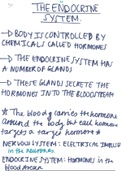 THE ENDOCRINE
SYSTEM.
→ BODY IS CONTROLLED BY
CHEMICALS CALLED HORMONES
→ THE ENDOCRINE SYSTEM HAS
A NUMBER OF GLANDS
→ THESE GLANDS SECRETE THE
HORMONES INTO THE BLOODSTREAM
* The blood carries the hormone
around the body but each hormone
targets a target hormone *
NERVOUS SYSTEM: ELECTRICAL IMPULSE
in the
ENDOCRINE SYSTEM: HORMONES in the
blood stream